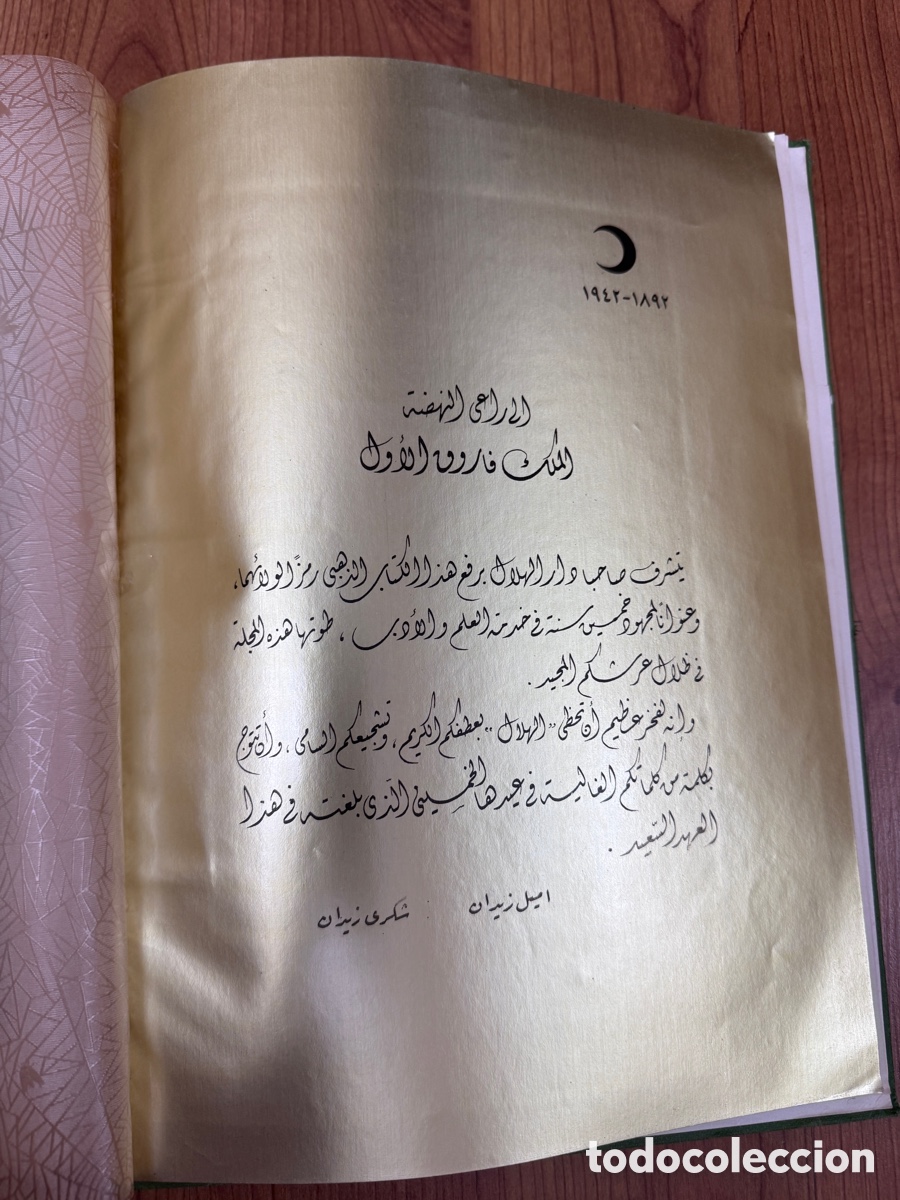 ١٨٩٢-١٩٤٢
الى راعى النهضة
الملك فاروق الأول
يتشرف صاحبا دار الهلال برفع هذا الكتاب الذهبى رمزًا لولائهما،
وعنوانا لمجهود خمسين سنة فى خدمة العلم والأدب ، طوتها هذه المجلة
فى ظلال عرشكم المجيد .
وإنه لفخر عظيم أن تحظى "الهلال" بعطفكم الكريم ، وتشجيعكم السامى ، وأن تتوج
بكلمة من كلماتكم الغالية فى عيدها الخمسينى الذى بلغته فى هذا
العهد السعيد .
اميل زيدان : شكرى زيدان
todocoleccion